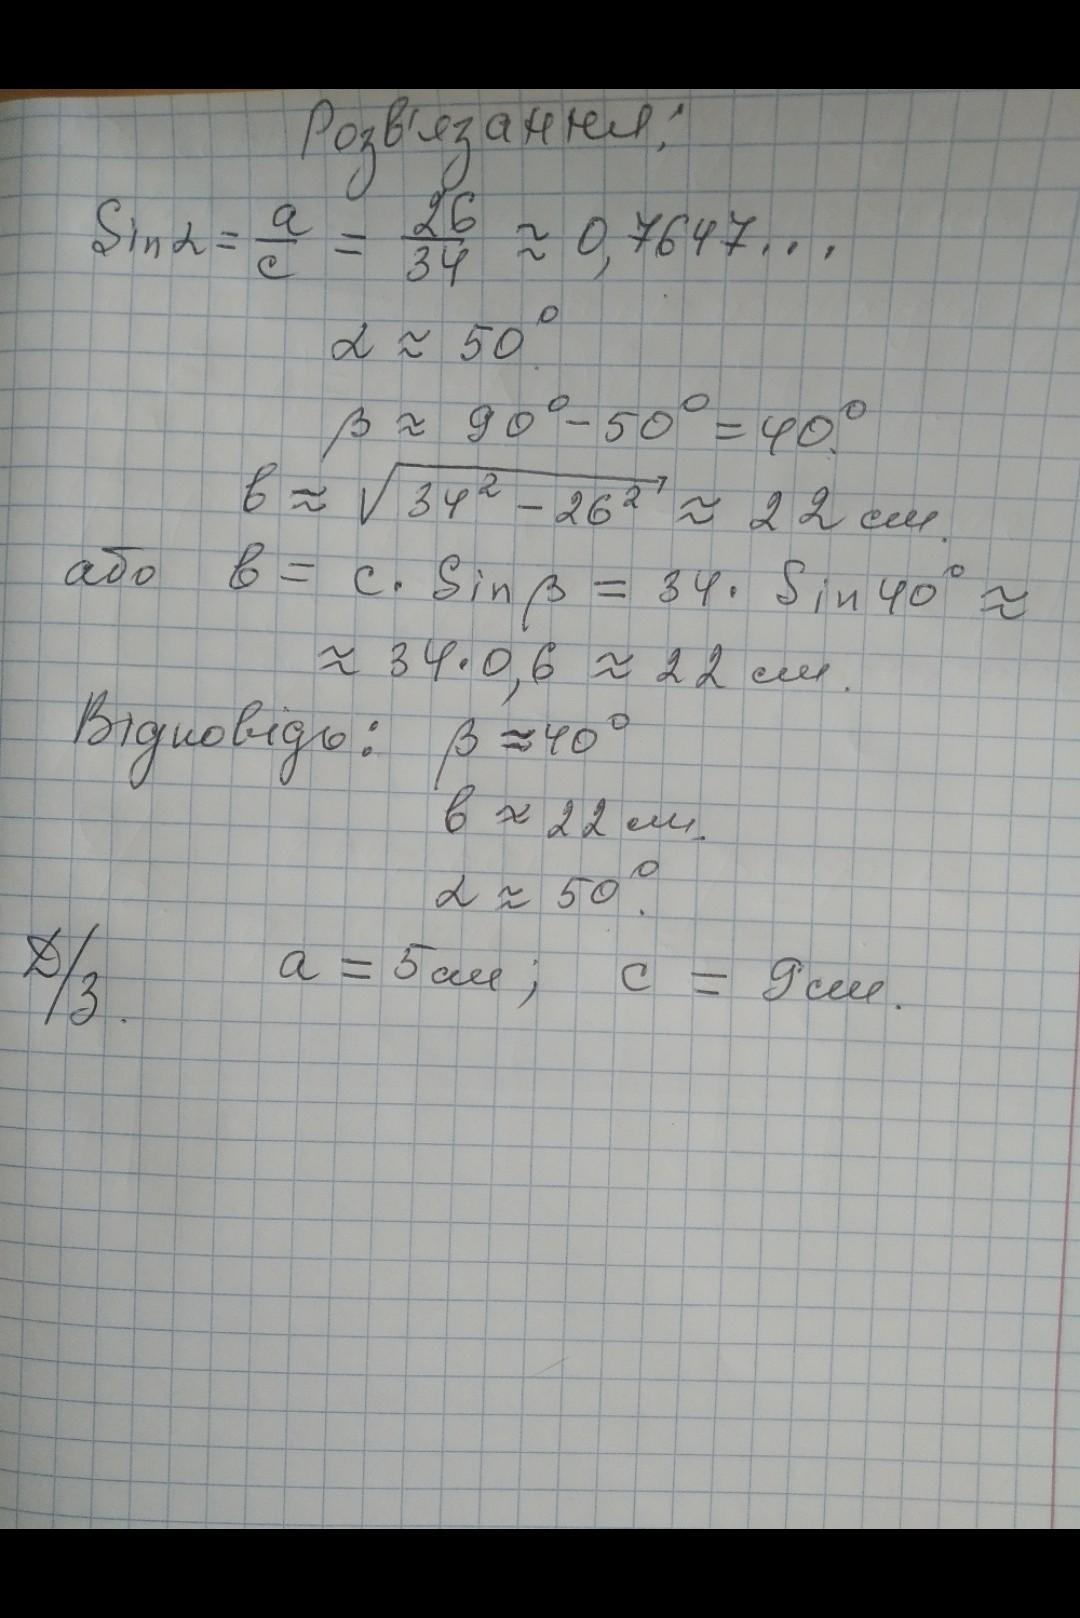 Розв'язання:
Sin α = a/c = 26/34 ≈ 0,7647...
α ≈ 50°.
β ≈ 90° - 50° = 40°.
в ≈ √34² - 26² ≈ 22 см.
або в = c · Sin β = 34 · Sin 40° ≈
≈ 34 · 0,6 ≈ 22 см.
Відповідь: β ≈ 40°
в ≈ 22 см.
α ≈ 50°.
Д/З. a = 5 см; c = 9 см.